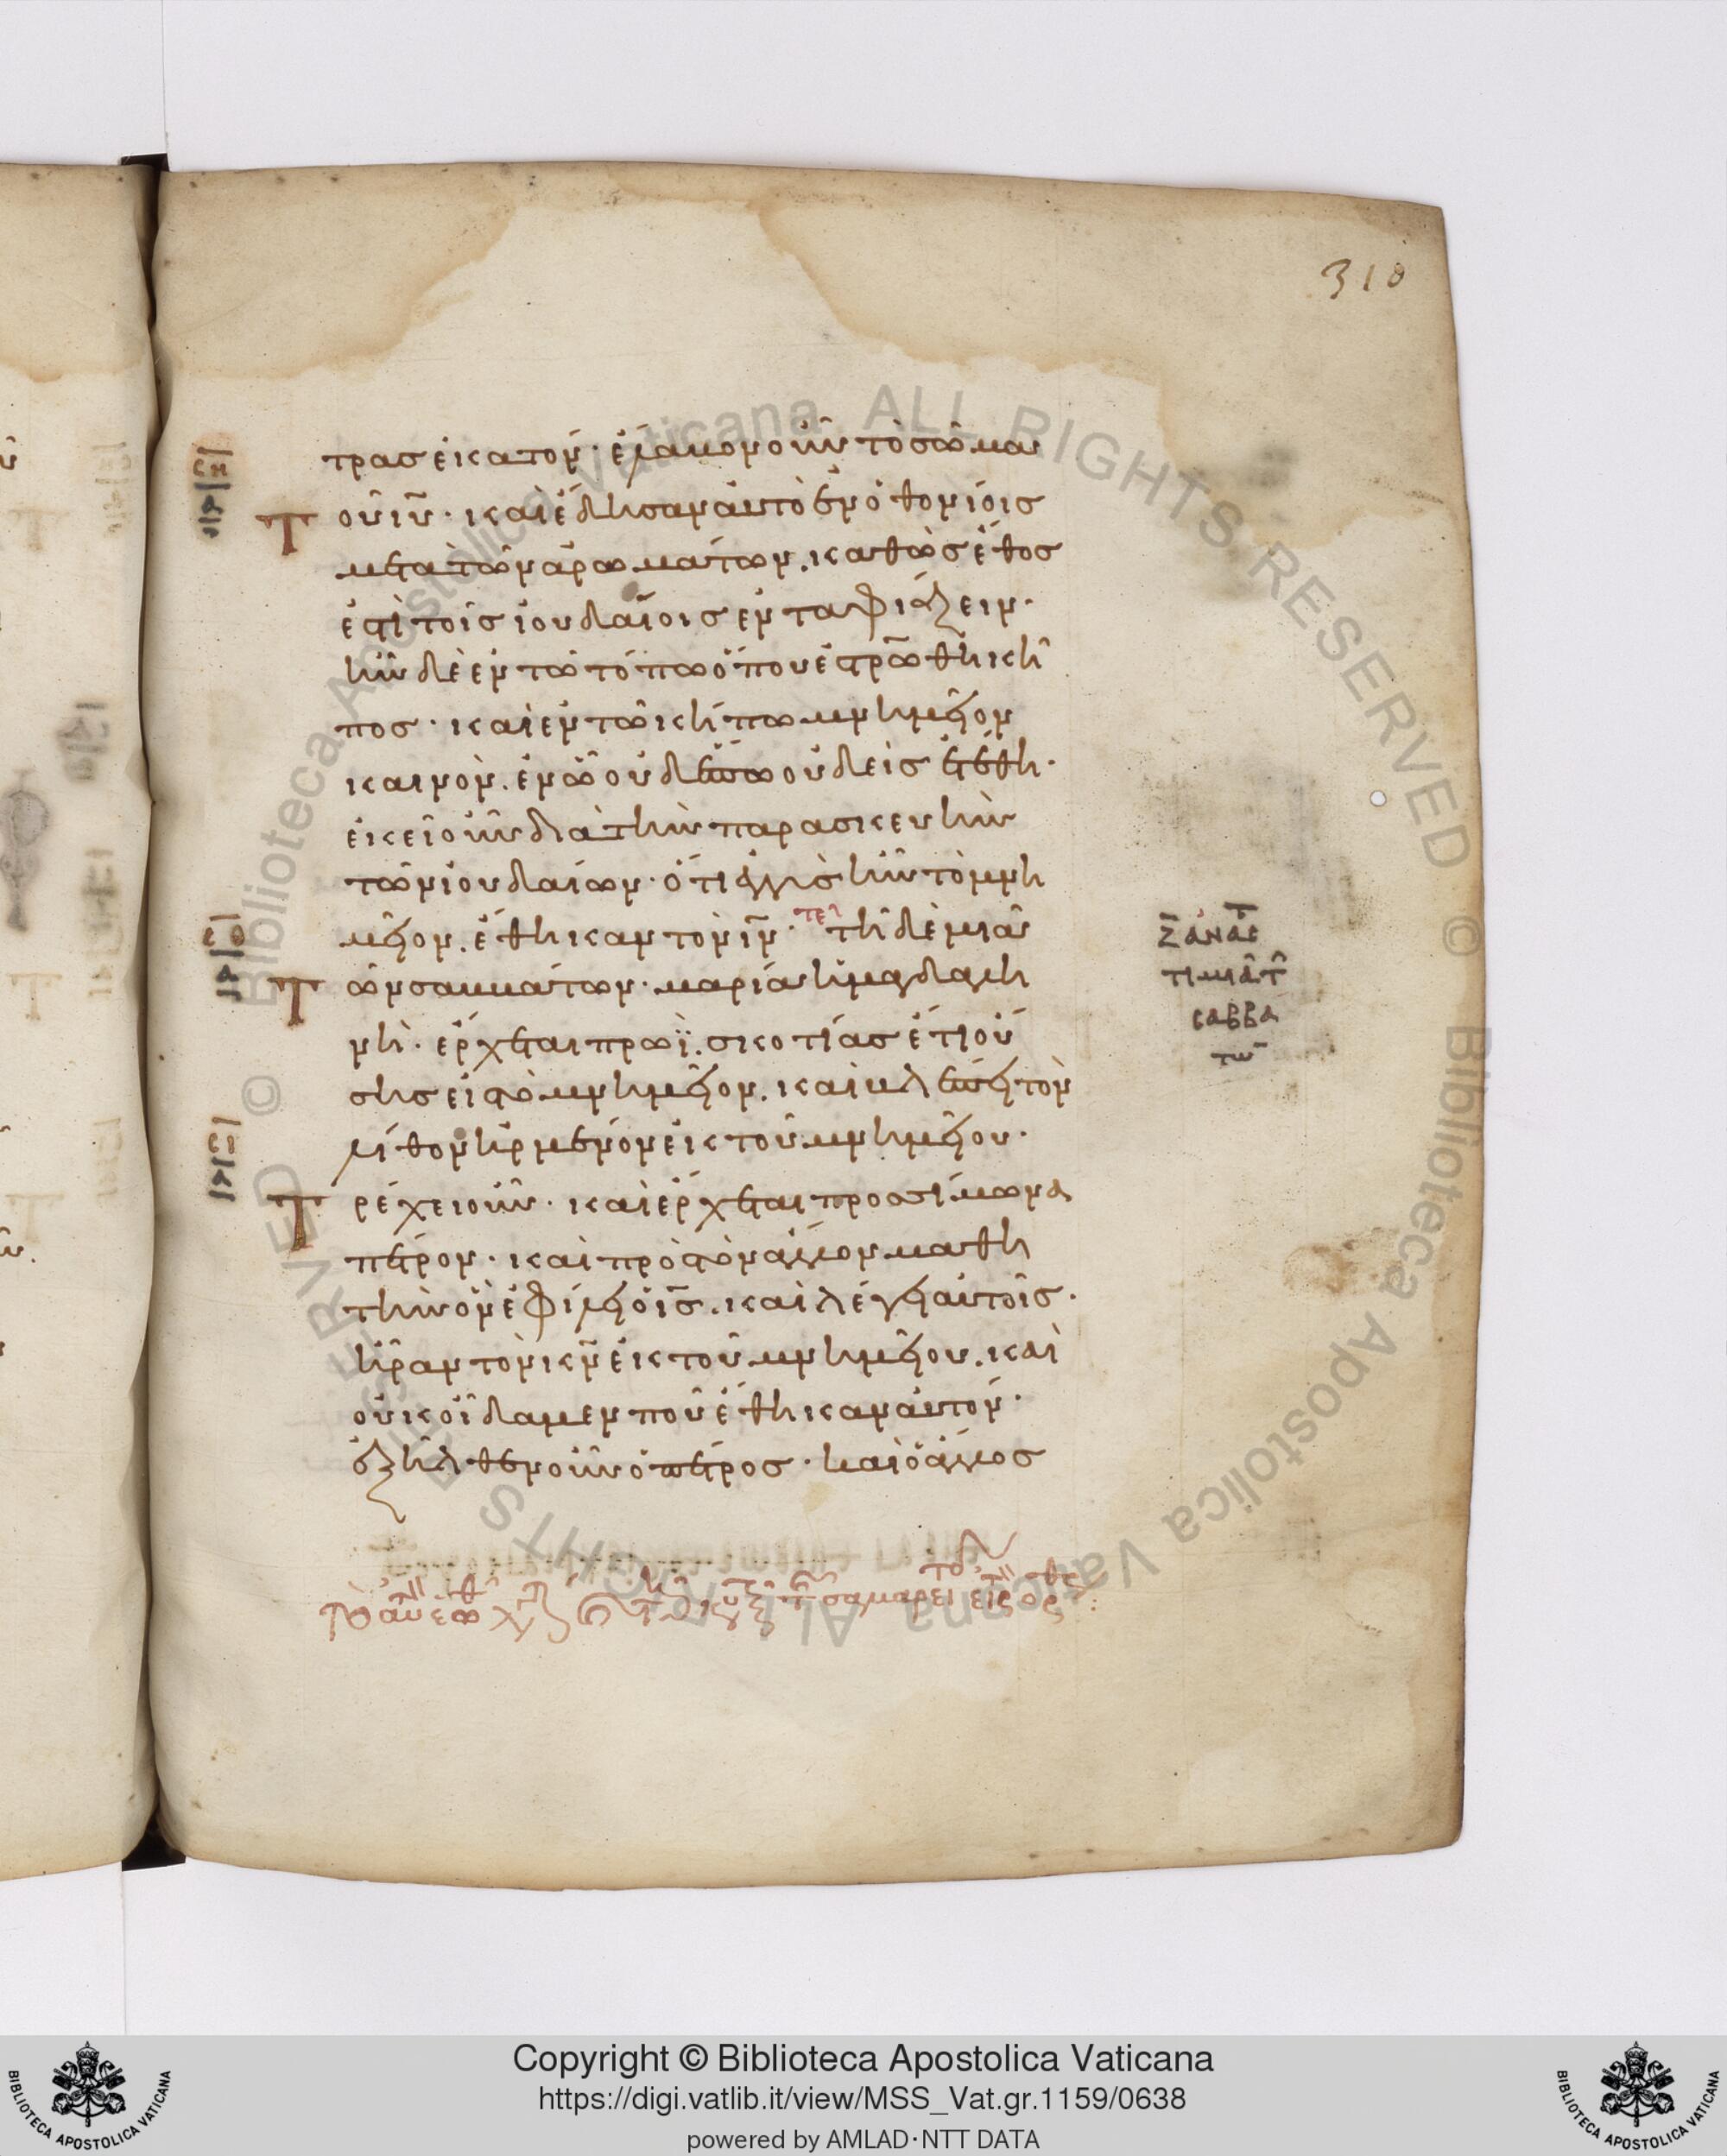 310
τρας ἑκατόν· ἔλαβον οὖν τὸ σῶμα τ
οῦ ιυ· καὶ ἔδησαν αὐτὸ ἐν ὀθονίοις
μετὰ τῶν ἀρωμάτων. καθὼς ἔθος
ἐστὶ τοῖς ἰουδαίοις ἐνταφιάζειν·
ἦν δὲ ἐν τῶ τόπω ὅπου ἐστρώθη κῆ
πος· καὶ ἐν τῶ κήπω μνημεῖον
καινὸν. ἐν ὧ οὐδέπω οὐδεὶς ἐτέθη·
ἐκεῖ οὖν διὰ τὴν παρασκευὴν
τῶν ἰουδαίων· ὅτι ἐγγὺς ἦν τὸ μνη
μεῖον. ἔθηκαν τὸν ιν· τελ τῆ δὲ μιᾶ
Τῶν σαββάτων· μαρία ἡ μαγδαλη
νὴ· ἔρχεται πρωῒ. σκοτίας ἔτι οὔ
σης εἰς τὸ μνημεῖον. καὶ βλέπει τὸν
λίθον ἠρμένον ἐκ τοῦ μνημείου·
Τρέχει οὖν· καὶ ἔρχεται προς σίμωνα
πέτρον· καὶ πρὸς τὸν ἄλλον μαθη
τὴν ὃν ἐφίλει ὁ ις. καὶ λέγει αὐτοῖς·
ἦραν τὸν κν ἐκ τοῦ μνημείου. καὶ
οὐκ οἴδαμεν ποῦ ἔθηκαν αὐτόν·
ἐξῆλθεν οὖν ὁ πέτρος· καὶ ὁ ἄλλος
Copyright © Biblioteca Apostolica Vaticana
https://digi.vatlib.it/view/MSS_Vat.gr.1159/0638
powered by AMLAD·NTT DATA